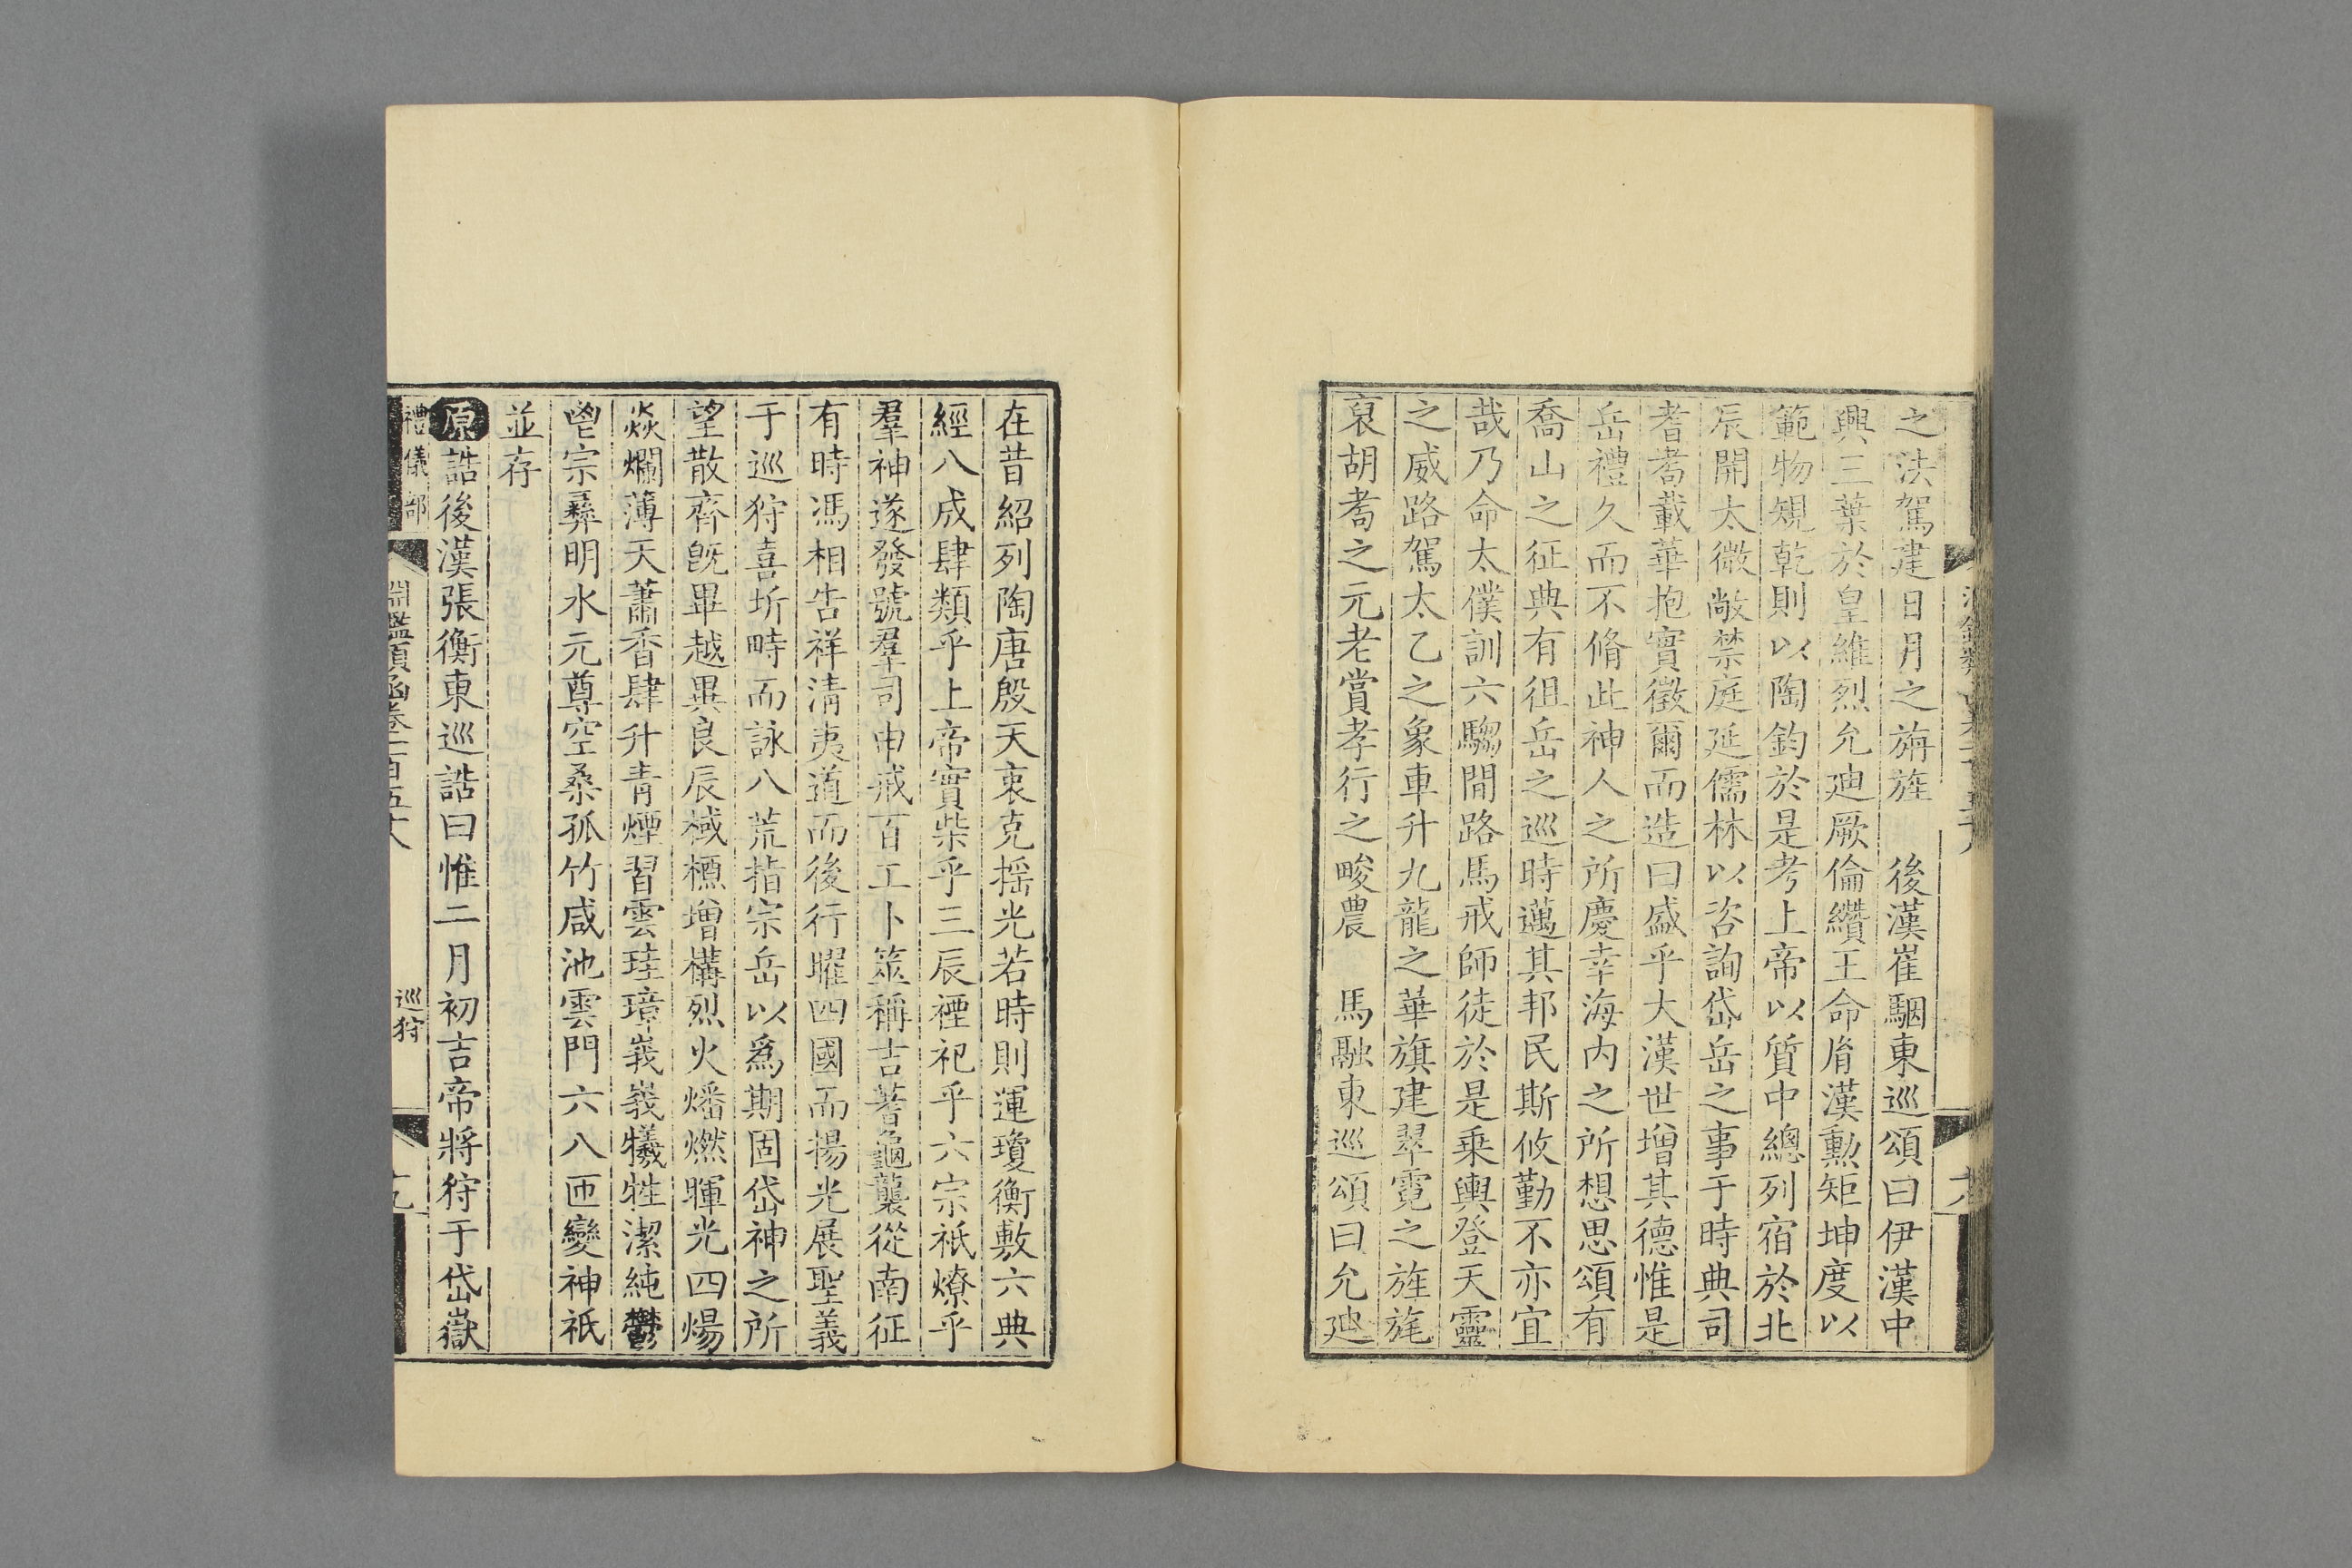 之法駕建日月之旃旌　後漢崔駰東巡頌曰伊漢中
興三葉於皇維烈允廸厥倫纘王命胤漢勳矩坤度以
範物規乾則以陶鈞於是考上帝以質中總列宿於北
辰開太微敞禁庭延儒林以咨詢岱岳之事于時典司
耆耇載華抱實徵爾而造曰盛乎大漢世增其德惟是
岳禮久而不脩此神人之所慶幸海内之所想思頌有
喬山之征典有徂岳之巡時邁其邦民斯攸勤不亦宜
哉乃命太僕訓六騶閒路馬戒師徒於是乗輿登天靈
之威路駕太乙之象車升九龍之華旗建翠霓之旌旄
裒胡耇之元老賞孝行之畯農　馬融東巡頌曰允廸
在昔紹列陶唐殷天衷克搖光若時則運瓊衡敷六典
經八成肆類乎上帝實柴乎三辰禋祀乎六宗祇燎乎
羣神遂發號羣司申戒百工卜筮稱吉蓍龜襲從南征
有時馮相告祥清夷道而後行曜四國而揚光展聖義
于巡狩喜圻畤而詠八荒指宗岳以爲期固岱神之所
望散齊既畢越異良辰棫槱增構烈火燔燃暉光四煬
焱爛薄天蕭香肆升青煙習雲珪璋峩峩犧牲潔純鬱
鬯宗彝明水元尊空桑孤竹咸池雲門六八匝變神祇
並存
原誥後漢張衡東巡誥曰惟二月初吉帝將狩于岱嶽
禮儀部
淵鑑類函卷一百五十八
巡狩
十九